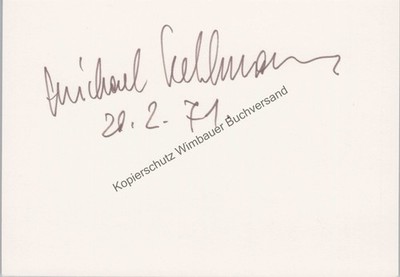 Michael Kehlmann
20.2.71.
Kopierschutz Wimbauer Buchversand